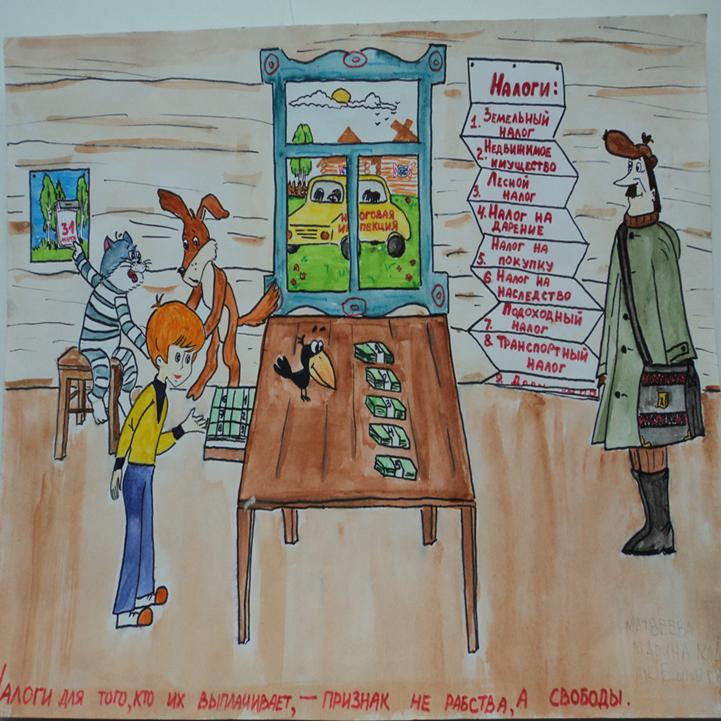 Налоги:
1. Земельный
налог
2. Недвижимое
имущество
3. Лесной
налог
4. Налог на
дарение
Налог на
5. покупку
6. Налог на
наследство
Подоходный
7. налог
8. Транспортный
налог
9.
31
марта
Налоговая
инспекция
Матвеева
Налоги для того, кто их выплачивает, – признак не рабства, а свободы.